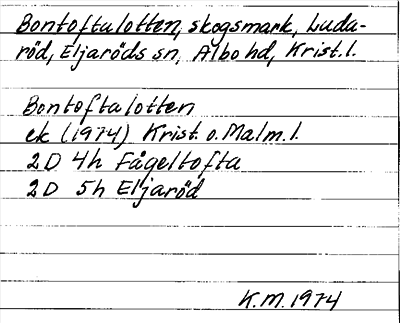 Bontoftalotten, skogsmark, Luda-
röd, Eljaröds sn, Albo hd, Krist. l.
Bontoftalotten
ek (1974) Krist. o. Malm. l.
2D 4h Fågeltofta
2D 5h Eljaröd
K.M. 1974